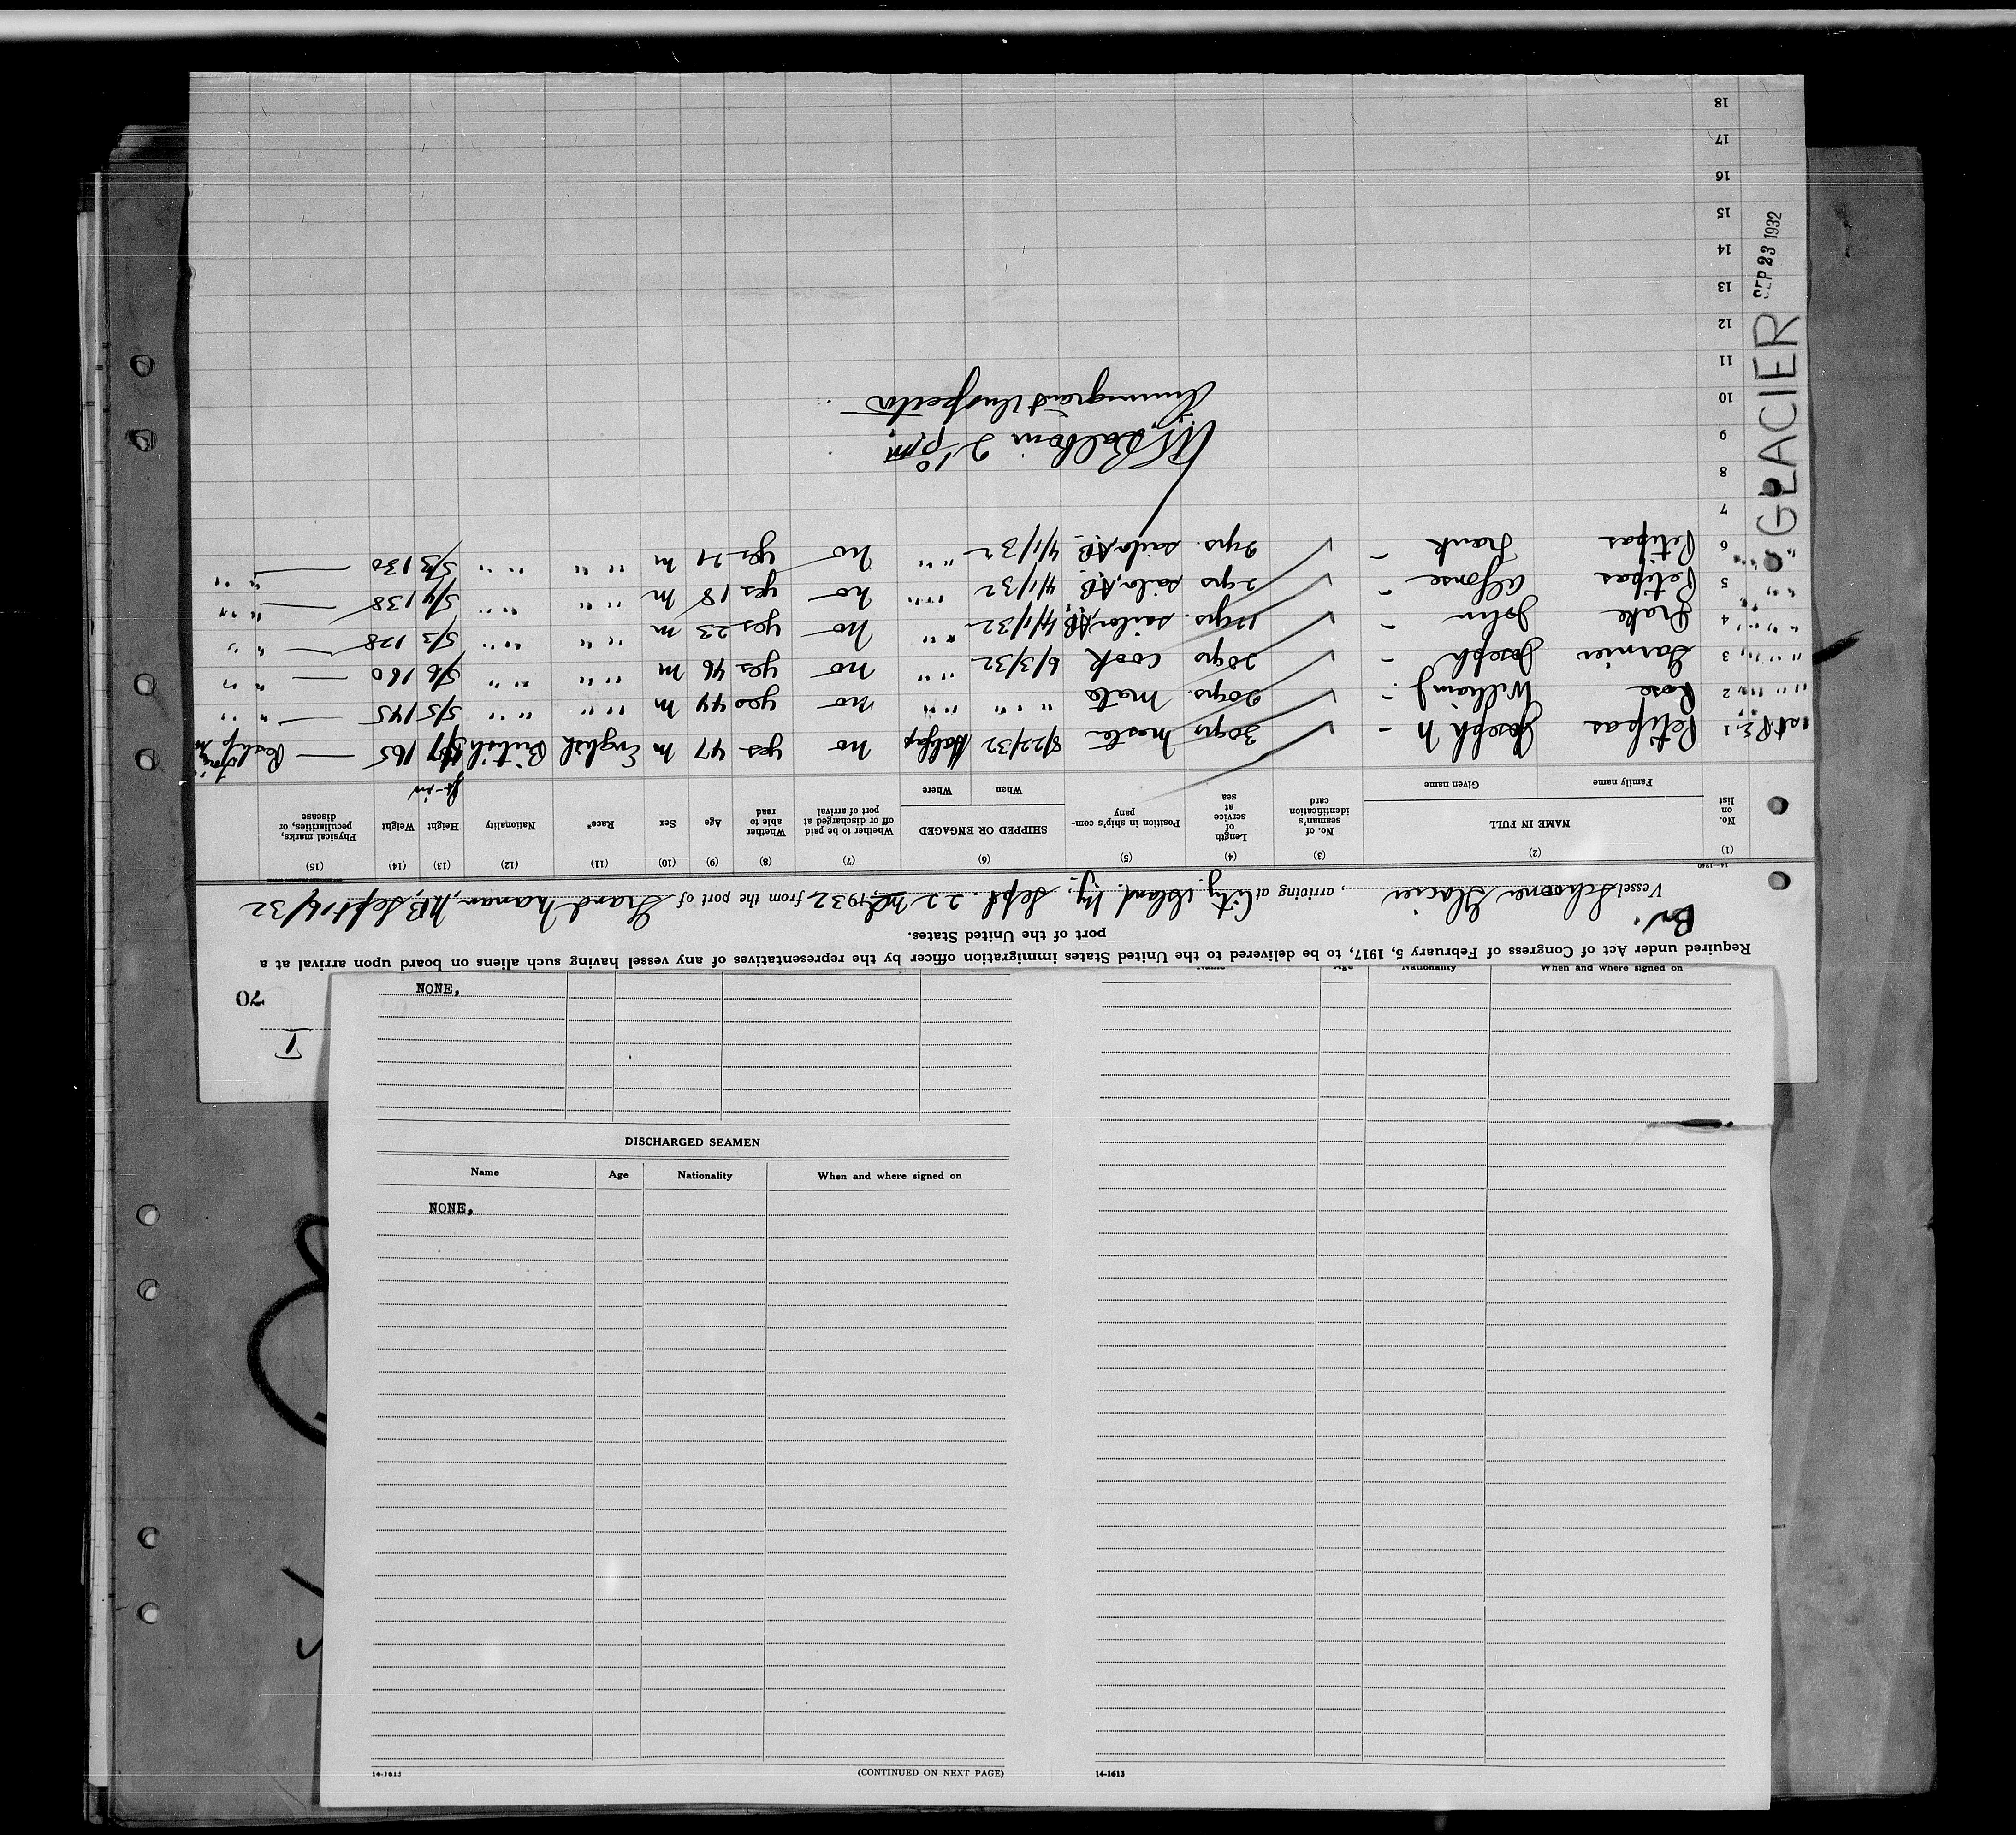 70
I
Required under Act of Congress of February 5, 1917, to be delivered to the United States immigration officer by the representatives of any vessel having such aliens on board upon arrival at a
port of the United States.
Br.
Vessel Schooner Glacier, arriving at City Island, Ny. Sept. 22nd, 1932, from the port of Grand Manan, N.B. Sept 14/32
14—1240
(1) (2) (3) (4) (5) (6) (7) (8) (9) (10) (11) (12) (13) (14) (15)
No. on list NAME IN FULL Family name Given name No. of seaman's identification card Length of service at sea Position in ship's company SHIPPED OR ENGAGED When Where Whether to be paid off or discharged at port of arrival Whether able to read Age Sex Race* Nationality Height ft-in Weight Physical marks, peculiarities, or disease
1 Petipas Joseph N - 30yrs Master 8/22/32 Halifax no yes 47 M English British 5/7 165 —
2 Rose William J. 20yrs. Mate " " " " no yes 44 M " " " " 5/5 145 — " "
3 Garnier Joseph - 20yrs cook 6/3/32 " " no yes 46 M " " " " 5/6 160 — " "
4 Drake John - 11yrs. sailor, AB. 4/1/32 " " no yes 23 M " " " " 5/3 128 — " "
5 Petipas Alfonse - 2yrs sailor, AB 4/1/32 " " no yes 18 M " " " " 5/4 138 — " "
6 Petipas Frank - 2yrs. sailor, AB. 4/1/32 " " no yes 21 M " " " " 5/3 130 — " "
7
8
9 Baldwin 2 10 p.m.
10 Immigrant Inspector
11
12
13
14
15
16
17
18
GLACIER
SEP 23 1932
NONE,
DISCHARGED SEAMEN
Name Age Nationality When and where signed on
NONE,
14-1613
(CONTINUED ON NEXT PAGE)
Name Age Nationality When and where signed on
14-1613